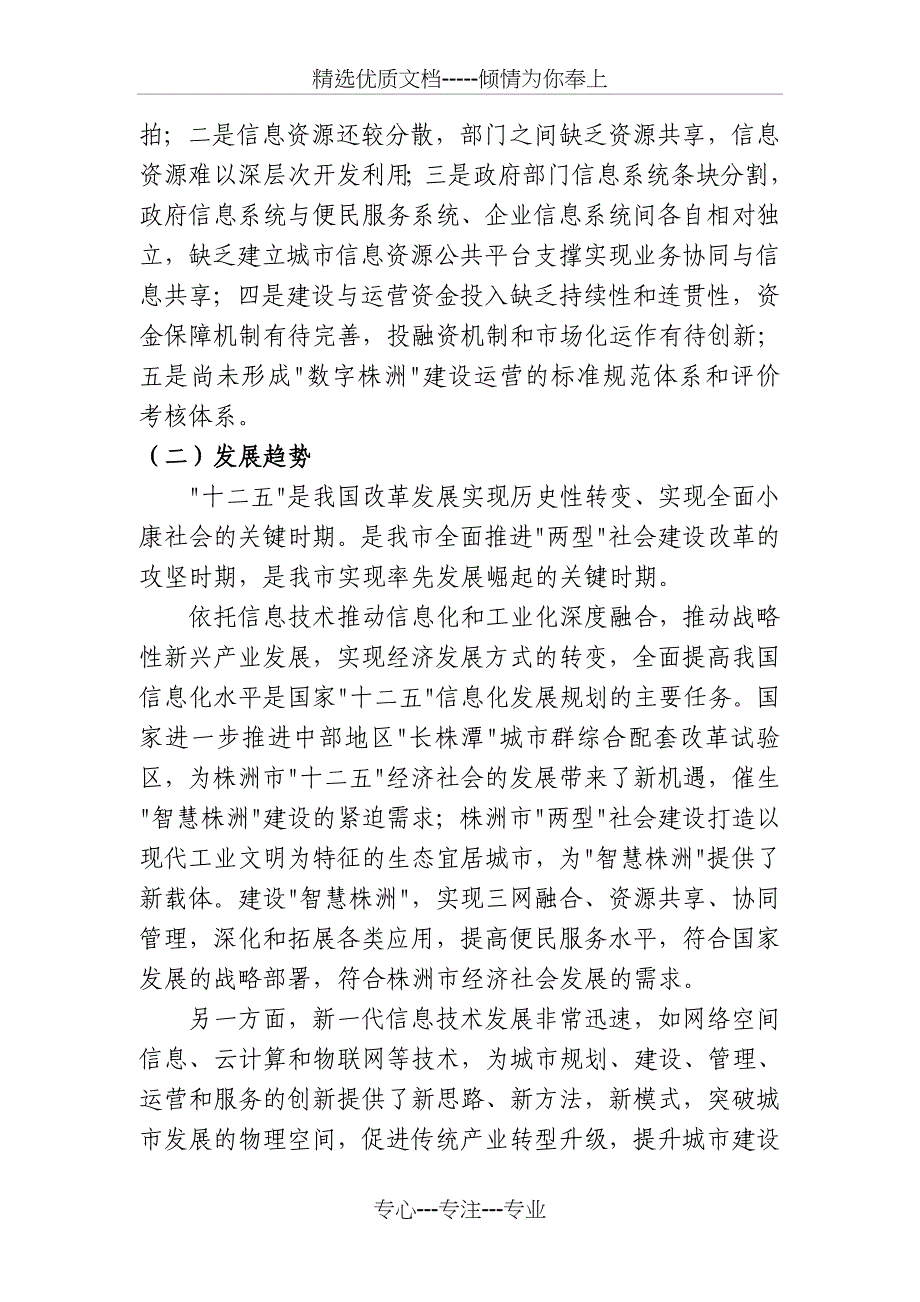 精选优质文档-----倾情为你奉上
拍；二是信息资源还较分散，部门之间缺乏资源共享，信息
资源难以深层次开发利用；三是政府部门信息系统条块分割，
政府信息系统与便民服务系统、企业信息系统间各自相对独
立，缺乏建立城市信息资源公共平台支撑实现业务协同与信
息共享；四是建设与运营资金投入缺乏持续性和连贯性，资
金保障机制有待完善，投融资机制和市场化运作有待创新；
五是尚未形成"数字株洲"建设运营的标准规范体系和评价
考核体系。
（二）发展趋势
"十二五"是我国改革发展实现历史性转变、实现全面小
康社会的关键时期。是我市全面推进"两型"社会建设改革的
攻坚时期，是我市实现率先发展崛起的关键时期。
依托信息技术推动信息化和工业化深度融合，推动战略
性新兴产业发展，实现经济发展方式的转变，全面提高我国
信息化水平是国家"十二五"信息化发展规划的主要任务。国
家进一步推进中部地区"长株潭"城市群综合配套改革试验
区，为株洲市"十二五"经济社会的发展带来了新机遇，催生
"智慧株洲"建设的紧迫需求；株洲市"两型"社会建设打造以
现代工业文明为特征的生态宜居城市，为"智慧株洲"提供了
新载体。建设"智慧株洲"，实现三网融合、资源共享、协同
管理，深化和拓展各类应用，提高便民服务水平，符合国家
发展的战略部署，符合株洲市经济社会发展的需求。
另一方面，新一代信息技术发展非常迅速，如网络空间
信息、云计算和物联网等技术，为城市规划、建设、管理、
运营和服务的创新提供了新思路、新方法，新模式，突破城
市发展的物理空间，促进传统产业转型升级，提升城市建设
专心---专注---专业